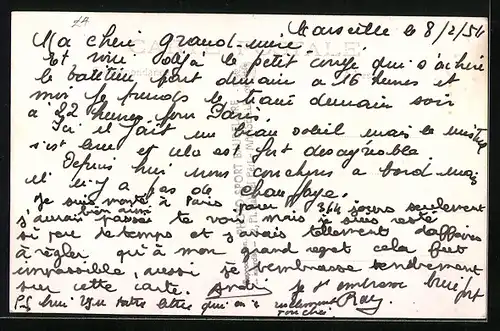 Marseille le 8/2/54
Ma chéri Grand-mère
Et voici déjà le petit congé qui s'achève
le bateau part demain a 16 heures et
moi je prends le train demain soir
à 22 heures pour Paris.
Ici il fait un beau soleil mais le mistral
s'est levé et cela est fort desagréable
Depuis hier nous couchons a bord mais
il n'y a pas de chauffage.
Je suis monté à Paris pour 3 à 4 jours seulement
j'aurais bien aimé passer te voir mais je suis resté
si peu de temps et j'avais tellement d'affaires
à régler, qu'à mon grand regret cela fut
impossible, aussi je t'embrasse tendrement
sur cette carte. je t'embrasse bien fort
PS bien reçu votre lettre qui m'a Ray
touché